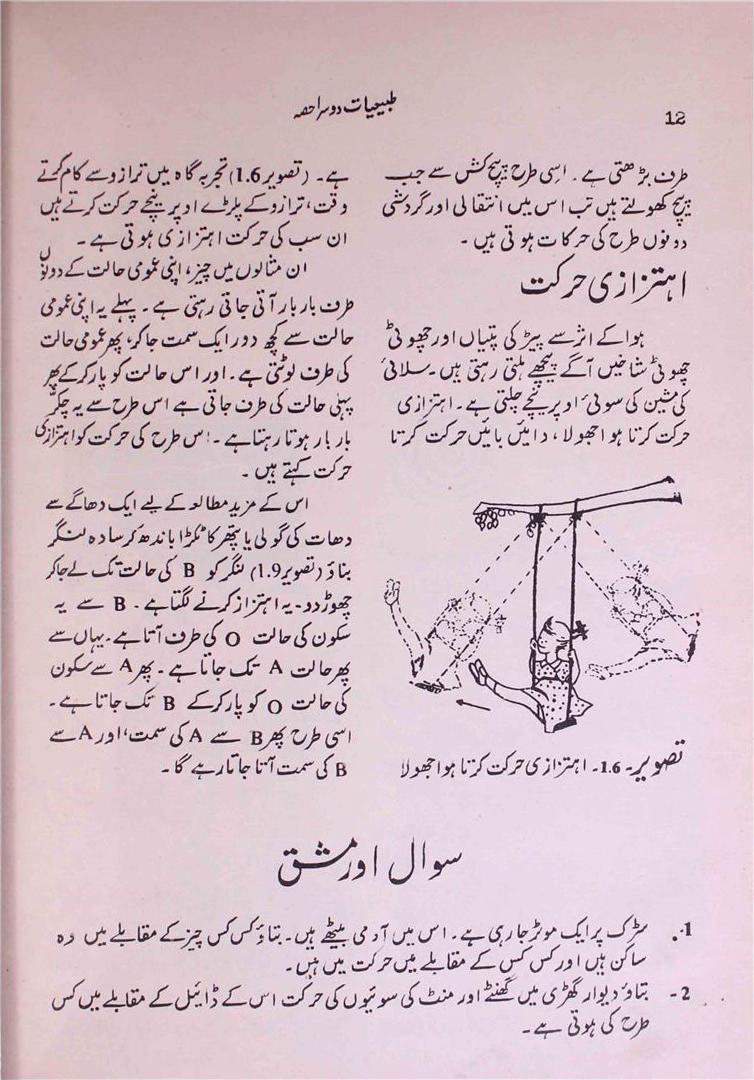 12
طبیعیات دوسرا حصہ
طرف بڑھتی ہے۔ اسی طرح پیچ کش سے جب
پیچ کھولتے ہیں تب اس میں انتقالی اور گردشی
دونوں طرح کی حرکات ہوتی ہیں۔
اہتزازی حرکت
ہوا کے اثر سے پیڑ کی پتیاں اور چھوٹی
چھوٹی شاخیں آگے پیچھے ہلتی رہتی ہیں۔ سلائی
کی مشین کی سوئی اوپر نیچے چلتی ہے۔ اہتزازی
حرکت کرتا ہوا جھولا، دائیں بائیں حرکت کرتا
تصویر۔ 1.6۔ اہتزازی حرکت کرتا ہوا جھولا
ہے۔ (تصویر 1.6) تجربہ گاہ میں ترازو سے کام کرتے
وقت، ترازو کے پلڑے اوپر نیچے حرکت کرتے ہیں
ان سب کی حرکت اہتزازی ہوتی ہے۔
ان مثالوں میں چیز، اپنی عمومی حالت کے دونوں
طرف بار بار آتی جاتی رہتی ہے۔ پہلے یہ اپنی عمومی
حالت سے کچھ دور ایک سمت جا کر، پھر عمومی حالت
کی طرف لوٹتی ہے۔ اور اس حالت کو پار کر کے پھر
پہلی حالت کی طرف جاتی ہے اس طرح سے یہ چکر
بار بار ہوتا رہتا ہے۔ اس طرح کی حرکت کو اہتزازی
حرکت کہتے ہیں۔
اس کے مزید مطالعہ کے لیے ایک دھاگے سے
دھات کی گولی یا پتھر کا ٹکڑا باندھ کر سادہ لنگر
بناؤ (تصویر 1.9) لنگر کو B کی حالت تک لے جا کر
چھوڑ دو۔ یہ اہتزاز کرنے لگتا ہے۔ B سے یہ
سکون کی حالت O کی طرف آتا ہے۔ یہاں سے
پھر حالت A تک جاتا ہے۔ پھر A سے سکون
کی حالت O کو پار کر کے B تک جاتا ہے۔
اسی طرح پھر B سے A کی سمت، اور A سے
B کی سمت آتا جاتا رہے گا۔
سوال اور مشق
1۔ سڑک پر ایک موٹر جا رہی ہے۔ اس میں آدمی بیٹھے ہیں۔ بتاؤ کس کس چیز کے مقابلے میں وہ
ساکن ہیں اور کس کس کے مقابلے میں حرکت میں ہیں۔
2۔ بتاؤ دیوار گھڑی میں گھنٹے اور منٹ کی سوئیوں کی حرکت اس کے ڈائیل کے مقابلے میں کس
طرح کی ہوتی ہے۔